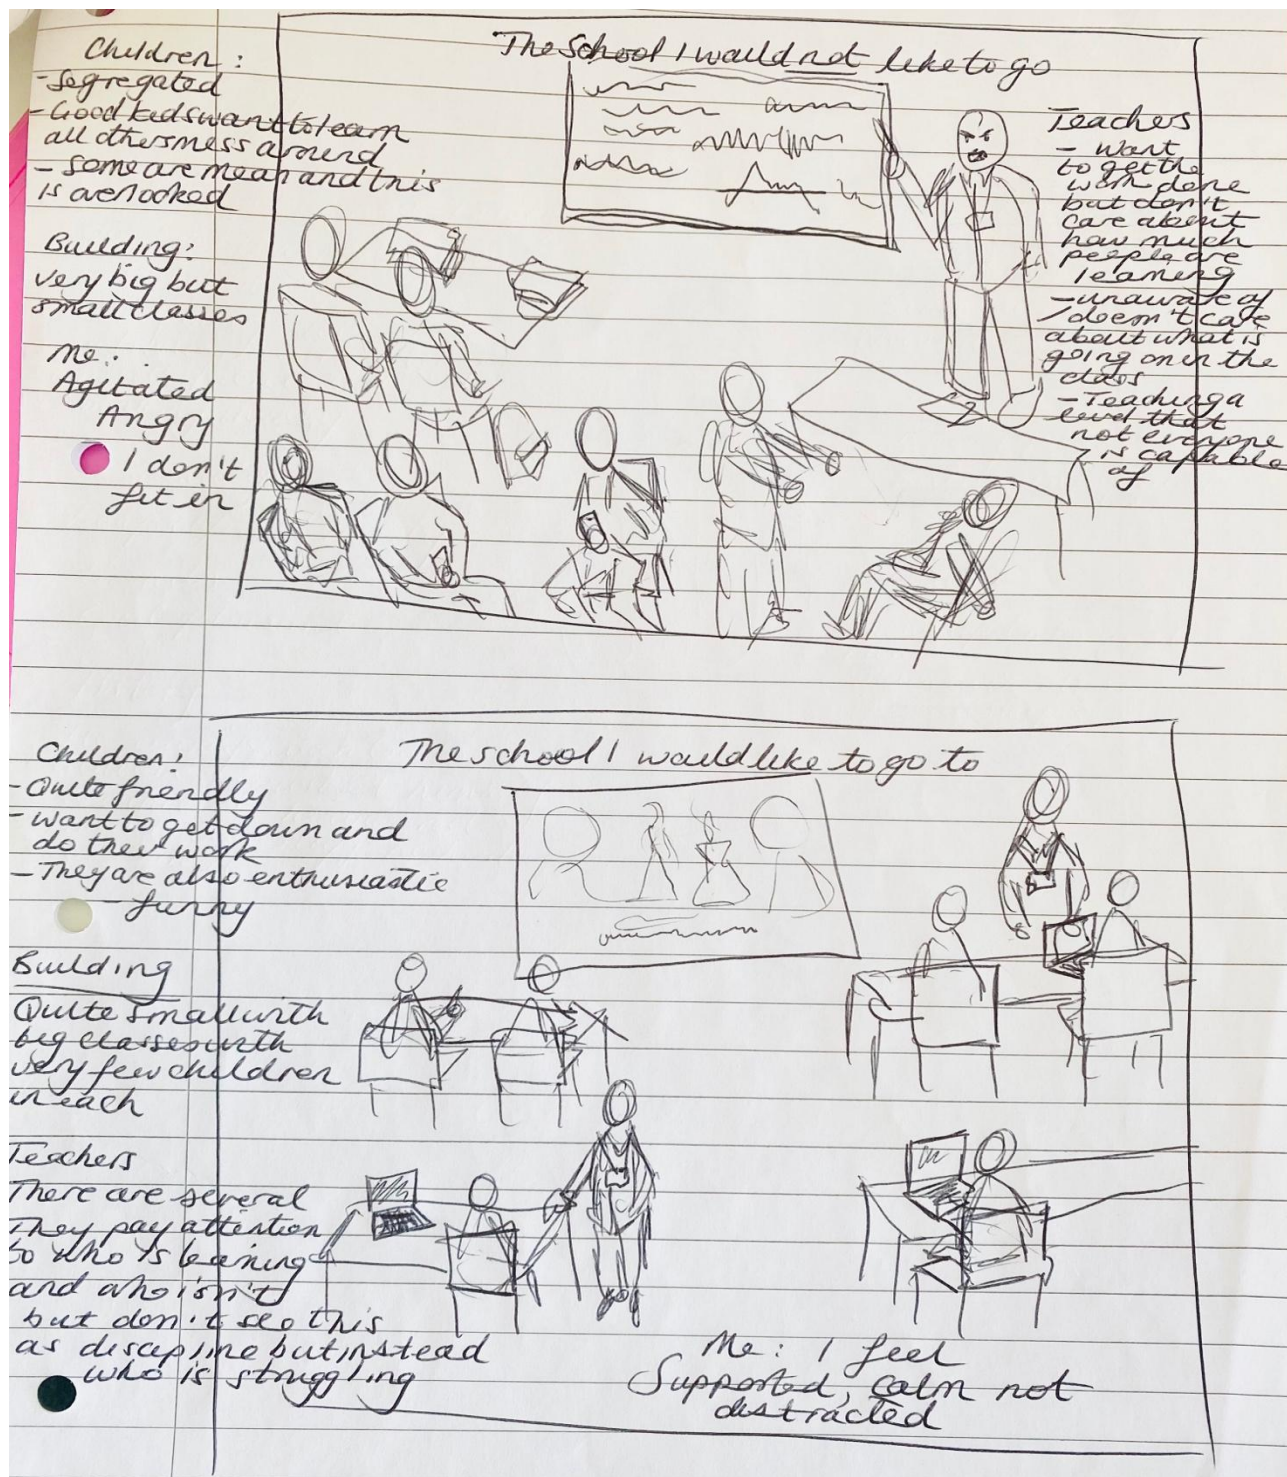 The school I would not like to go
Children :
- Segregated
- Good kids want to learn
all others mess around
- some are mean and this
is overlooked
Building:
very big but
small classes
Me:
Agitated
Angry
I don't
fit in
Teachers
- want
to get the
work done
but don't
care about
how much
people are
learning
- unaware of
/ doesn't care
about what is
going on in the
class
- Teaching a
level that
not everyone
is capable
of
The school I would like to go to
Children:
- Quite friendly
- want to get down and
do their work
- They are also enthusiastic
- funny
Building
Quite small with
big classes with
very few children
in each
Teachers
There are several
They pay attention
to who is learning
and who isn't
but don't see this
as discipline but instead
who is struggling
Me: I feel
Supported, calm not
distracted